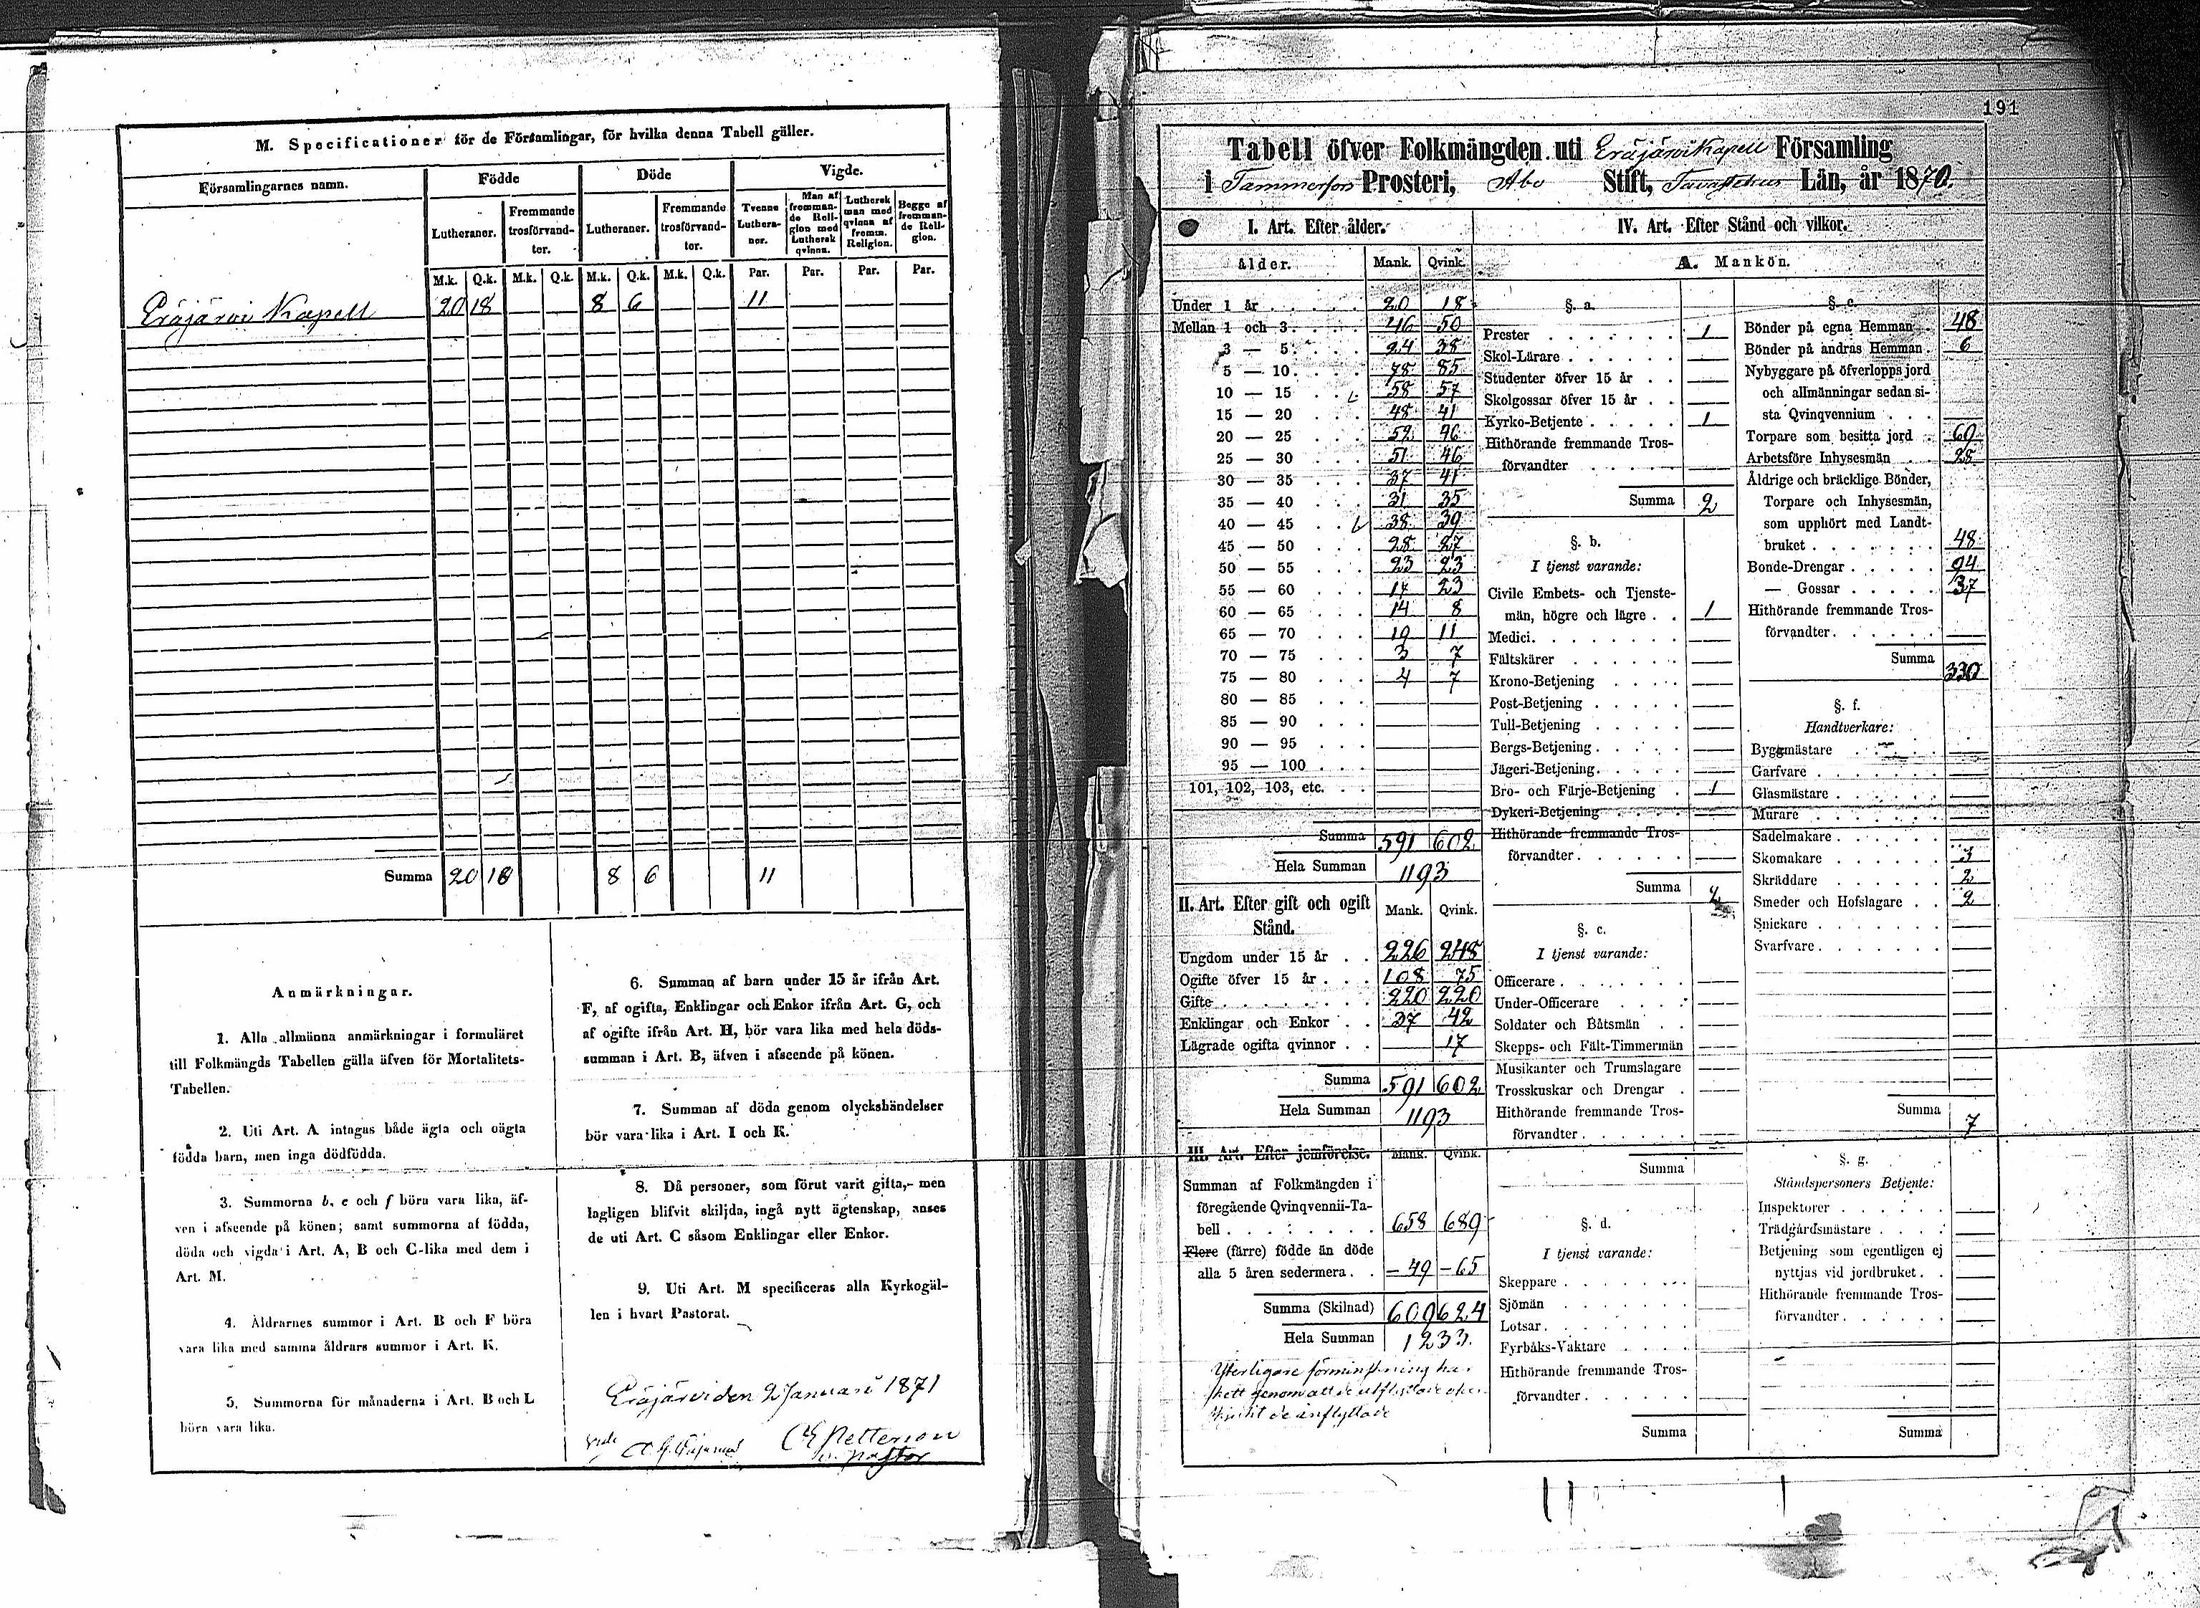 M. Specificationer för de Församlingar, för hvilka denna Tabell gäller.
Församlingarnes namn. Födde Döde Vigde.
Lutheraner. Fremmande trosförvandter. Lutheraner. Fremmande trosförvandter. Tvenne Lutheraner. Man af fremmande Religion med Luthersk qvinna. Luthersk man med qvinna af fremm. Religion. Begge af fremmande Religion.
M.k. Q.k. M.k. Q.k. M.k. Q.k. M.k. Q.k. Par. Par. Par. Par.
Eräjärvi Kapell 20 18 8 6 11
Summa 20 18 8 6 11
Anmärkningar.
1. Alla allmänna anmärkningar i formuläret
till Folkmängds Tabellen gälla äfven för Mortalitets-
Tabellen.
2. Uti Art. A intagas både ägta och oägta
födda barn, men inga dödfödda.
3. Summorna b, e och f böra vara lika, äf-
ven i afseende på könen; samt summorna af födda,
döda och vigda i Art. A, B och C lika med dem i
Art. M.
4. Åldrarnes summor i Art. B och F böra
vara lika med samma åldrars summor i Art. K.
5. Summorna för månaderna i Art. B och L
böra vara lika.
6. Summan af barn under 15 år ifrån Art.
F, af ogifta, Enklingar och Enkor ifrån Art. G, och
af ogifte ifrån Art. H, bör vara lika med hela döds-
summan i Art. B, äfven i afseende på könen.
7. Summan af döda genom olyckshändelser
bör vara lika i Art. I och K.
8. Då personer, som förut varit gifta, men
lagligen blifvit skiljda, ingå nytt ägtenskap, anses
de uti Art. C såsom Enklingar eller Enkor.
9. Uti Art. M specificeras alla Kyrkogäl-
len i hvart Pastorat.
Eräjärvi den 2 Januari 1871
Petterson
Pastor
191
Tabell öfver Folkmängden uti Eräjärvi Kapell Församling
i Tammerfors Prosteri, Åbo Stift, Tavastehus Län, år 1870.
I. Art. Efter ålder.
ålder. Mank. Qvink.
Under 1 år 20 18
Mellan 1 och 3 46 50
3 — 5 24 38
5 — 10 78 85
10 — 15 58 57
15 — 20 48 41
20 — 25 52 46
25 — 30 51 46
30 — 35 37 41
35 — 40 31 35
40 — 45 38 39
45 — 50 28 27
50 — 55 23 23
55 — 60 17 23
60 — 65 14 8
65 — 70 19 11
70 — 75 3 7
75 — 80 4 7
80 — 85
85 — 90
90 — 95
95 — 100
101, 102, 103, etc.
Summa 591 602
Hela Summan 1193
II. Art. Efter gift och ogift Stånd. Mank. Qvink.
Ungdom under 15 år 226 248
Ogifte öfver 15 år 108 75
Gifte 220 220
Enklingar och Enkor 37 42
Lägrade ogifta qvinnor 17
Summa 591 602
Hela Summan 1193
III. Art. Efter jemförelse. Mank. Qvink.
Summan af Folkmängden i
föregående Qvinqvennii-Ta-
bell 658 689
Flere (färre) födde än döde
alla 5 åren sedermera -49 -65
Summa (Skilnad) 609 624
Hela Summan 1233.
Ytterligare förminskning har
skett genom att de utflyttade
de inflyttade
IV. Art. Efter Stånd och vilkor.
A. Mankön.
§. a.
Prester 1
Skol-Lärare
Studenter öfver 15 år
Skolgossar öfver 15 år
Kyrko-Betjente 1
Hithörande fremmande Tros-
förvandter
Summa 2
§. b.
I tjenst varande:
Civile Embets- och Tjenste-
män, högre och lägre 1
Medici
Fältskärer
Krono-Betjening
Post-Betjening
Tull-Betjening
Bergs-Betjening
Jägeri-Betjening
Bro- och Färje-Betjening 1
Dykeri-Betjening
Hithörande fremmande Tros-
förvandter
Summa 2
§. c.
I tjenst varande:
Officerare
Under-Officerare
Soldater och Båtsmän
Skepps- och Fält-Timmermän
Musikanter och Trumslagare
Trosskuskar och Drengar
Hithörande fremmande Tros-
förvandter
Summa
§. d.
I tjenst varande:
Skeppare
Sjömän
Lotsar
Fyrbåks-Vaktare
Hithörande fremmande Tros-
förvandter
Summa
§. e.
Bönder på egna Hemman 48
Bönder på andras Hemman 6
Nybyggare på öfverlopps jord
och allmänningar sedan si-
sta Qvinqvennium
Torpare som besitta jord 69
Arbetsföre Inhysesmän 28
Åldrige och bräcklige Bönder,
Torpare och Inhysesmän,
som upphört med Landt-
bruket 48
Bonde-Drengar 94
— Gossar 37
Hithörande fremmande Tros-
förvandter
Summa 330
§. f.
Handtverkare:
Byggmästare
Garfvare
Glasmästare
Murare
Sadelmakare
Skomakare 3
Skräddare 2
Smeder och Hofslagare 2
Snickare
Svarfvare
Summa 7
§. g.
Ståndspersoners Betjente:
Inspektorer
Trädgårdsmästare
Betjening som egentligen ej
nyttjas vid jordbruket
Hithörande fremmande Tros-
förvandter
Summa